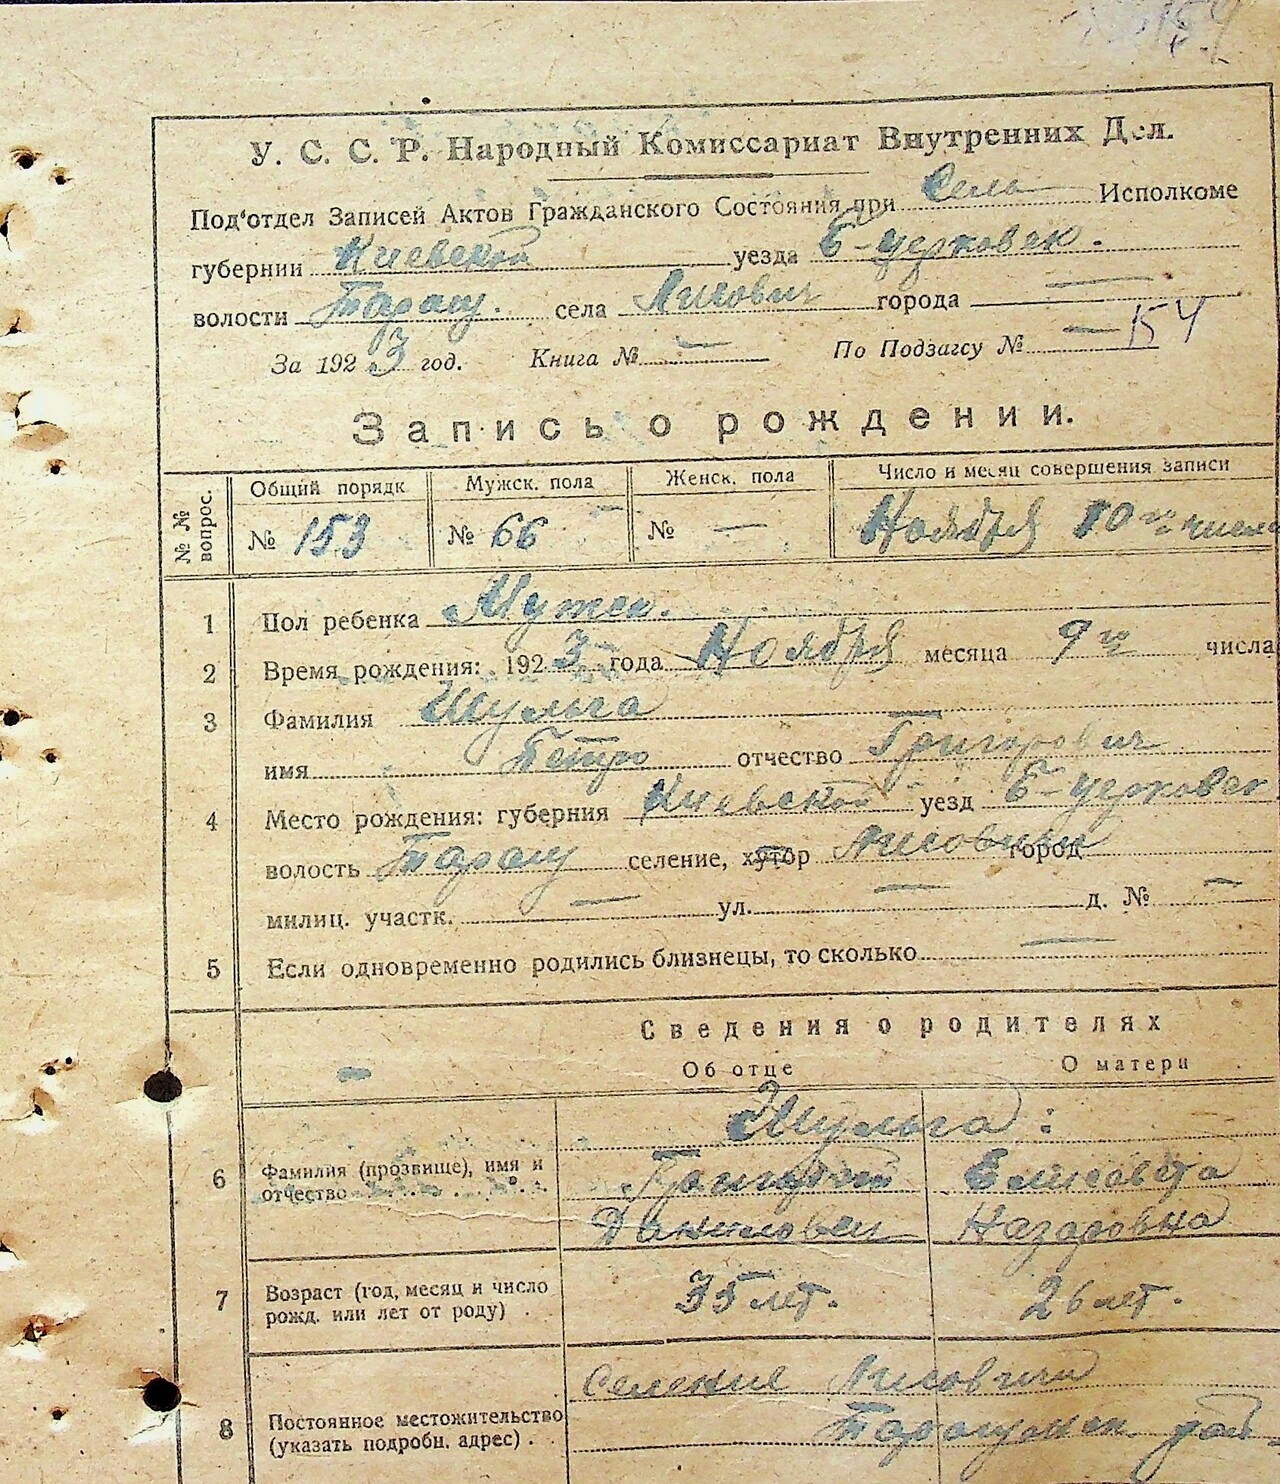 154
У. С. С. Р. Народный Комиссариат Внутренних Дел.
Под'отдел Записей Актов Гражданского Состояния при Сель Исполкоме
губернии Киевской уезда Б-церковск.
волости Таращ. села Лисович города —
За 1923 год. Книга № — По Подзагсу № — 154
Запись о рождении.
№ № вопрос. Общий порядк Мужск. пола Женск. пола Число и месяц совершения записи
№ 153 № 66 № — Ноября 10го числа
1 Пол ребенка Мужск.
2 Время рождения: 1923 года Ноября месяца 9го числа
3 Фамилия Шульга
имя Петро отчество Григорович
4 Место рождения: губерния Киевской уезд Б-церковск
волость Таращ селение, хутор Лисовичи город
милиц. участк. — ул. — д. № —
5 Если одновременно родились близнецы, то сколько —
Сведения о родителях
Об отце О матери
Шульга:
6 Фамилия (прозвище), имя и Григорий Елисавета
отчество Данилович Назаровна
7 Возраст (год, месяц и число 35 лет. 26 лет.
рожд. или лет от роду) .
Селение Лисовичи
8 Постоянное местожительство Таращанск. рай-
(указать подробн. адрес) .